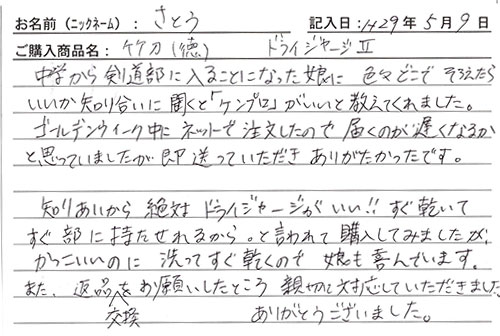 お名前（ニックネーム）: さとう 記入日: H29年5月9日
ご購入商品名: 竹刀（徳） ドライジャージⅡ
中学から剣道部に入ることになった娘に 色々どこで そろえたら
いいか 知り合いに 聞くと「ケンプロ」がいいと教えてくれました。
ゴールデンウィーク中に ネットで注文したので 届くのが遅くなるか
と思っていましたが 即 送っていただき ありがたかったです。
知りあいから 絶対 ドライジャージがいい!! すぐ乾いて
すぐ部に持たせれるから。と言われて 購入してみましたが、
かっこいいのに 洗ってすぐ乾くので 娘も喜んでいます。
また、返品、交換をお願いしたところ 親切に対応していただきました
ありがとうございました。